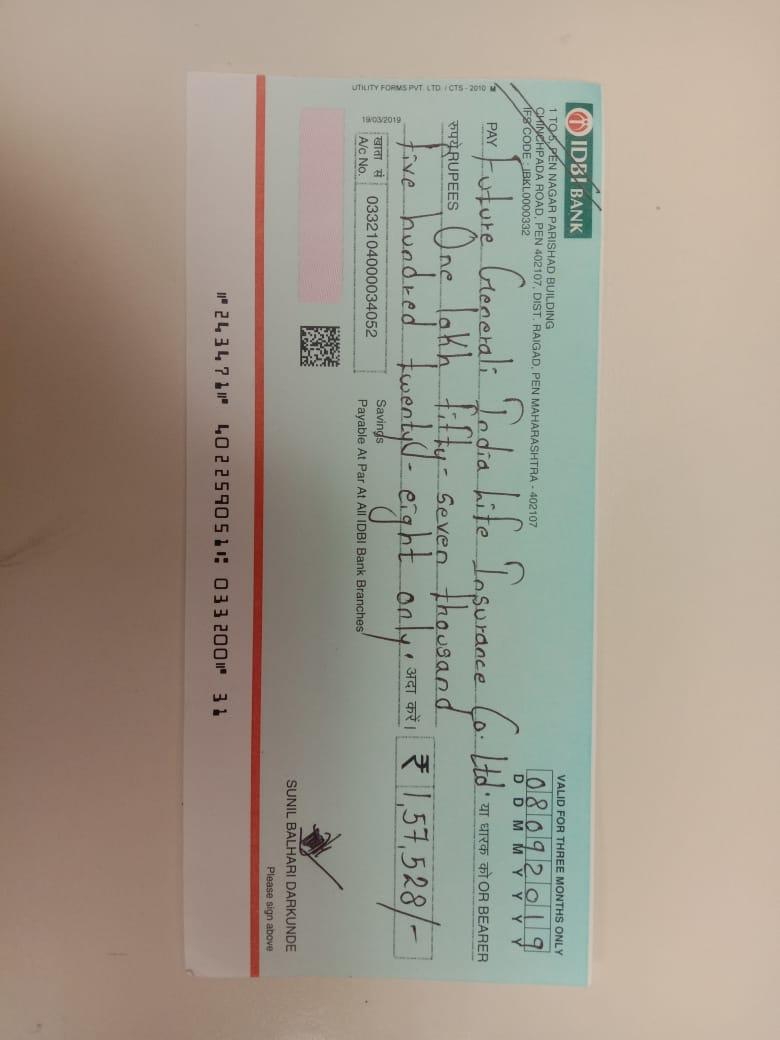 IDBI BANK
1 TO 5, PEN NAGAR PARISHAD BUILDING
CHINCHPADA ROAD, PEN 402107, DIST. RAIGAD, PEN MAHARASHTRA - 402107
IFS CODE : IBKL0000332
VALID FOR THREE MONTHS ONLY
08092019
D D M M Y Y Y Y
PAY Future Generali India Life Insurance Co. Ltd. या धारक को OR BEARER
रुपये RUPEES One lakh fifty-seven thousand
five hundred twenty-eight only. अदा करें। ₹ 1,57,528/-
UTILITY FORMS PVT. LTD. / CTS - 2010
19/03/2019
खाता सं
A/c No. 0332104000034052
Savings
Payable At Par At All IDBI Bank Branches
SUNIL BALHARI DARKUNDE
Please sign above
⑈243471⑈ 402259051⑆ 033200⑈ 31